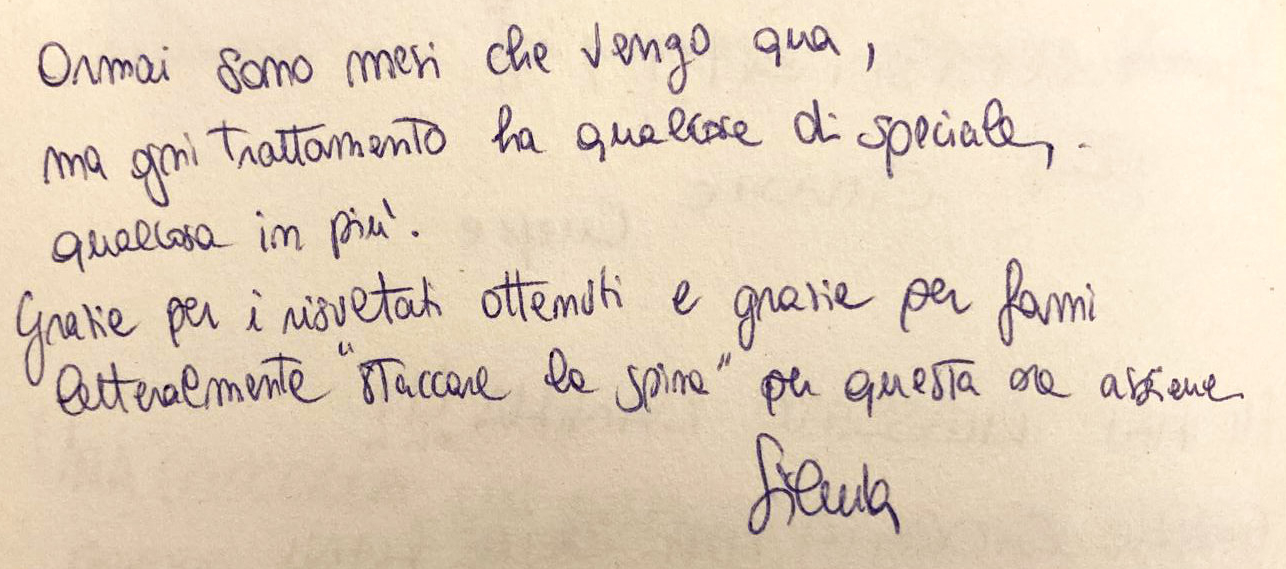 Ormai sono mesi che vengo qua,
ma ogni trattamento ha qualcosa di speciale,
qualcosa in più.
Grazie per i risultati ottenuti e grazie per farmi
letteralmente "staccare la spina" per questa ora assieme